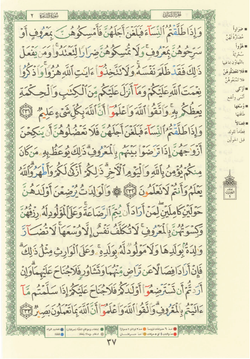 وَإِذَا طَلَّقْتُمُ ٱلنِّسَآءَ فَبَلَغْنَ أَجَلَهُنَّ فَأَمْسِكُوهُنَّ بِمَعْرُوفٍ أَوْ
سَرِّحُوهُنَّ بِمَعْرُوفٍ وَلَا تُمْسِكُوهُنَّ ضِرَارًا لِّتَعْتَدُوا۟ وَمَن يَفْعَلْ
ذَٰلِكَ فَقَدْ ظَلَمَ نَفْسَهُۥ وَلَا تَتَّخِذُوٓا۟ ءَايَٰتِ ٱللَّهِ هُزُوًا وَٱذْكُرُوا۟
نِعْمَتَ ٱللَّهِ عَلَيْكُمْ وَمَآ أَنزَلَ عَلَيْكُم مِّنَ ٱلْكِتَٰبِ وَٱلْحِكْمَةِ
يَعِظُكُم بِهِۦ وَٱتَّقُوا۟ ٱللَّهَ وَٱعْلَمُوٓا۟ أَنَّ ٱللَّهَ بِكُلِّ شَىْءٍ عَلِيمٌ ٢٣١
وَإِذَا طَلَّقْتُمُ ٱلنِّسَآءَ فَبَلَغْنَ أَجَلَهُنَّ فَلَا تَعْضُلُوهُنَّ أَن يَنكِحْنَ
أَزْوَٰجَهُنَّ إِذَا تَرَٰضَوْا۟ بَيْنَهُم بِٱلْمَعْرُوفِ ذَٰلِكَ يُوعَظُ بِهِۦ مَن كَانَ
مِنكُمْ يُؤْمِنُ بِٱللَّهِ وَٱلْيَوْمِ ٱلْءَاخِرِ ذَٰلِكُمْ أَزْكَىٰ لَكُمْ وَأَطْهَرُ وَٱللَّهُ
يَعْلَمُ وَأَنتُمْ لَا تَعْلَمُونَ ٢٣٢ ۞ وَٱلْوَٰلِدَٰتُ يُرْضِعْنَ أَوْلَٰدَهُنَّ
حَوْلَيْنِ كَامِلَيْنِ لِمَنْ أَرَادَ أَن يُتِمَّ ٱلرَّضَاعَةَ وَعَلَى ٱلْمَوْلُودِ لَهُۥ رِزْقُهُنَّ
وَكِسْوَتُهُنَّ بِٱلْمَعْرُوفِ لَا تُكَلَّفُ نَفْسٌ إِلَّا وُسْعَهَا لَا تُضَآرَّ
وَٰلِدَةٌۢ بِوَلَدِهَا وَلَا مَوْلُودٌ لَّهُۥ بِوَلَدِهِۦ وَعَلَى ٱلْوَارِثِ مِثْلُ ذَٰلِكَ
فَإِنْ أَرَادَا فِصَالًا عَن تَرَاضٍ مِّنْهُمَا وَتَشَاوُرٍ فَلَا جُنَاحَ عَلَيْهِمَا وَإِنْ
أَرَدتُّمْ أَن تَسْتَرْضِعُوٓا۟ أَوْلَٰدَكُمْ فَلَا جُنَاحَ عَلَيْكُمْ إِذَا سَلَّمْتُم مَّآ
ءَاتَيْتُم بِٱلْمَعْرُوفِ وَٱتَّقُوا۟ ٱللَّهَ وَٱعْلَمُوٓا۟ أَنَّ ٱللَّهَ بِمَا تَعْمَلُونَ بَصِيرٌ ٢٣٣
٣٧